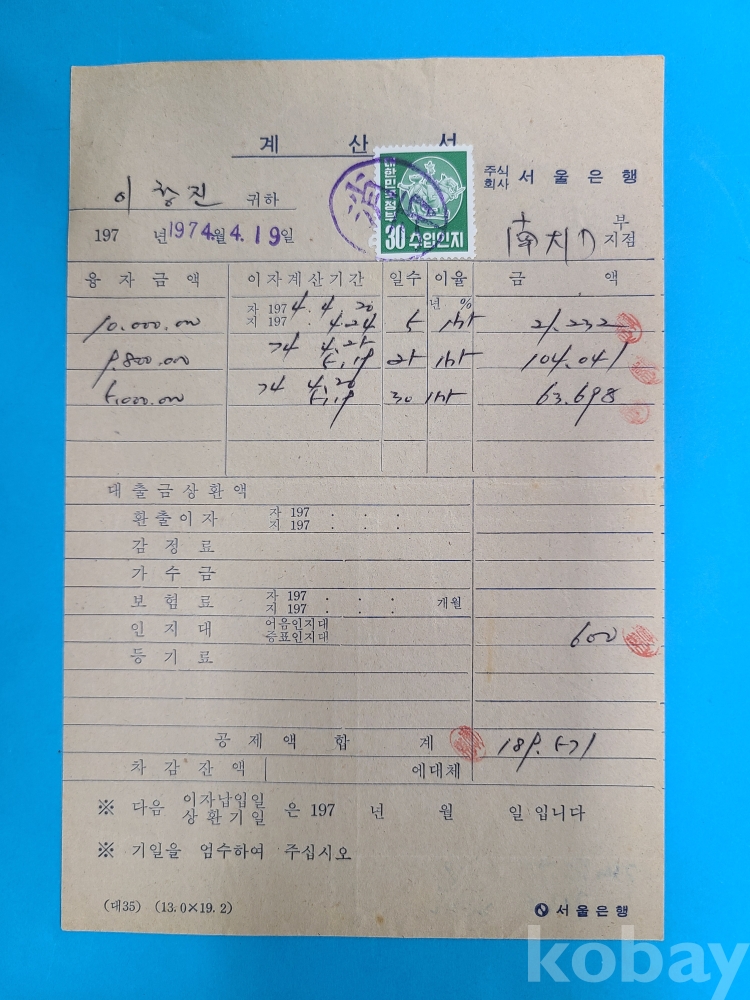 계 산 서
대한민국정부
30 수입인지
주식회사 서울은행
이창진 귀하
197 년 1974.월 4.19일
부
지점
융자금액 이자계산기간 일수 이율 금 액
년 %
10.000.000 자 197 4. 4. 20 지 197 . 4.24 5 15.5 21.232
9.800.000 74 4.25 5.19 25 15.5 104.041
5.000.000 74 4.20 5.19 30 15.5 63.698
대출금상환액
환출이자 자 197 . . . 지 197 . . .
감정료
가수금
보험료 자 197 . . . 지 197 . . . 개월
인지대 어음인지대 증표인지대 600
등기료
공제액합 계 189.571
차감잔액 에대체
※ 다음 이자납입일 상환기일 은 197 년 월 일입니다
※ 기일을 엄수하여 주십시오
(대35) (13.0×19.2) 서울은행
kobay